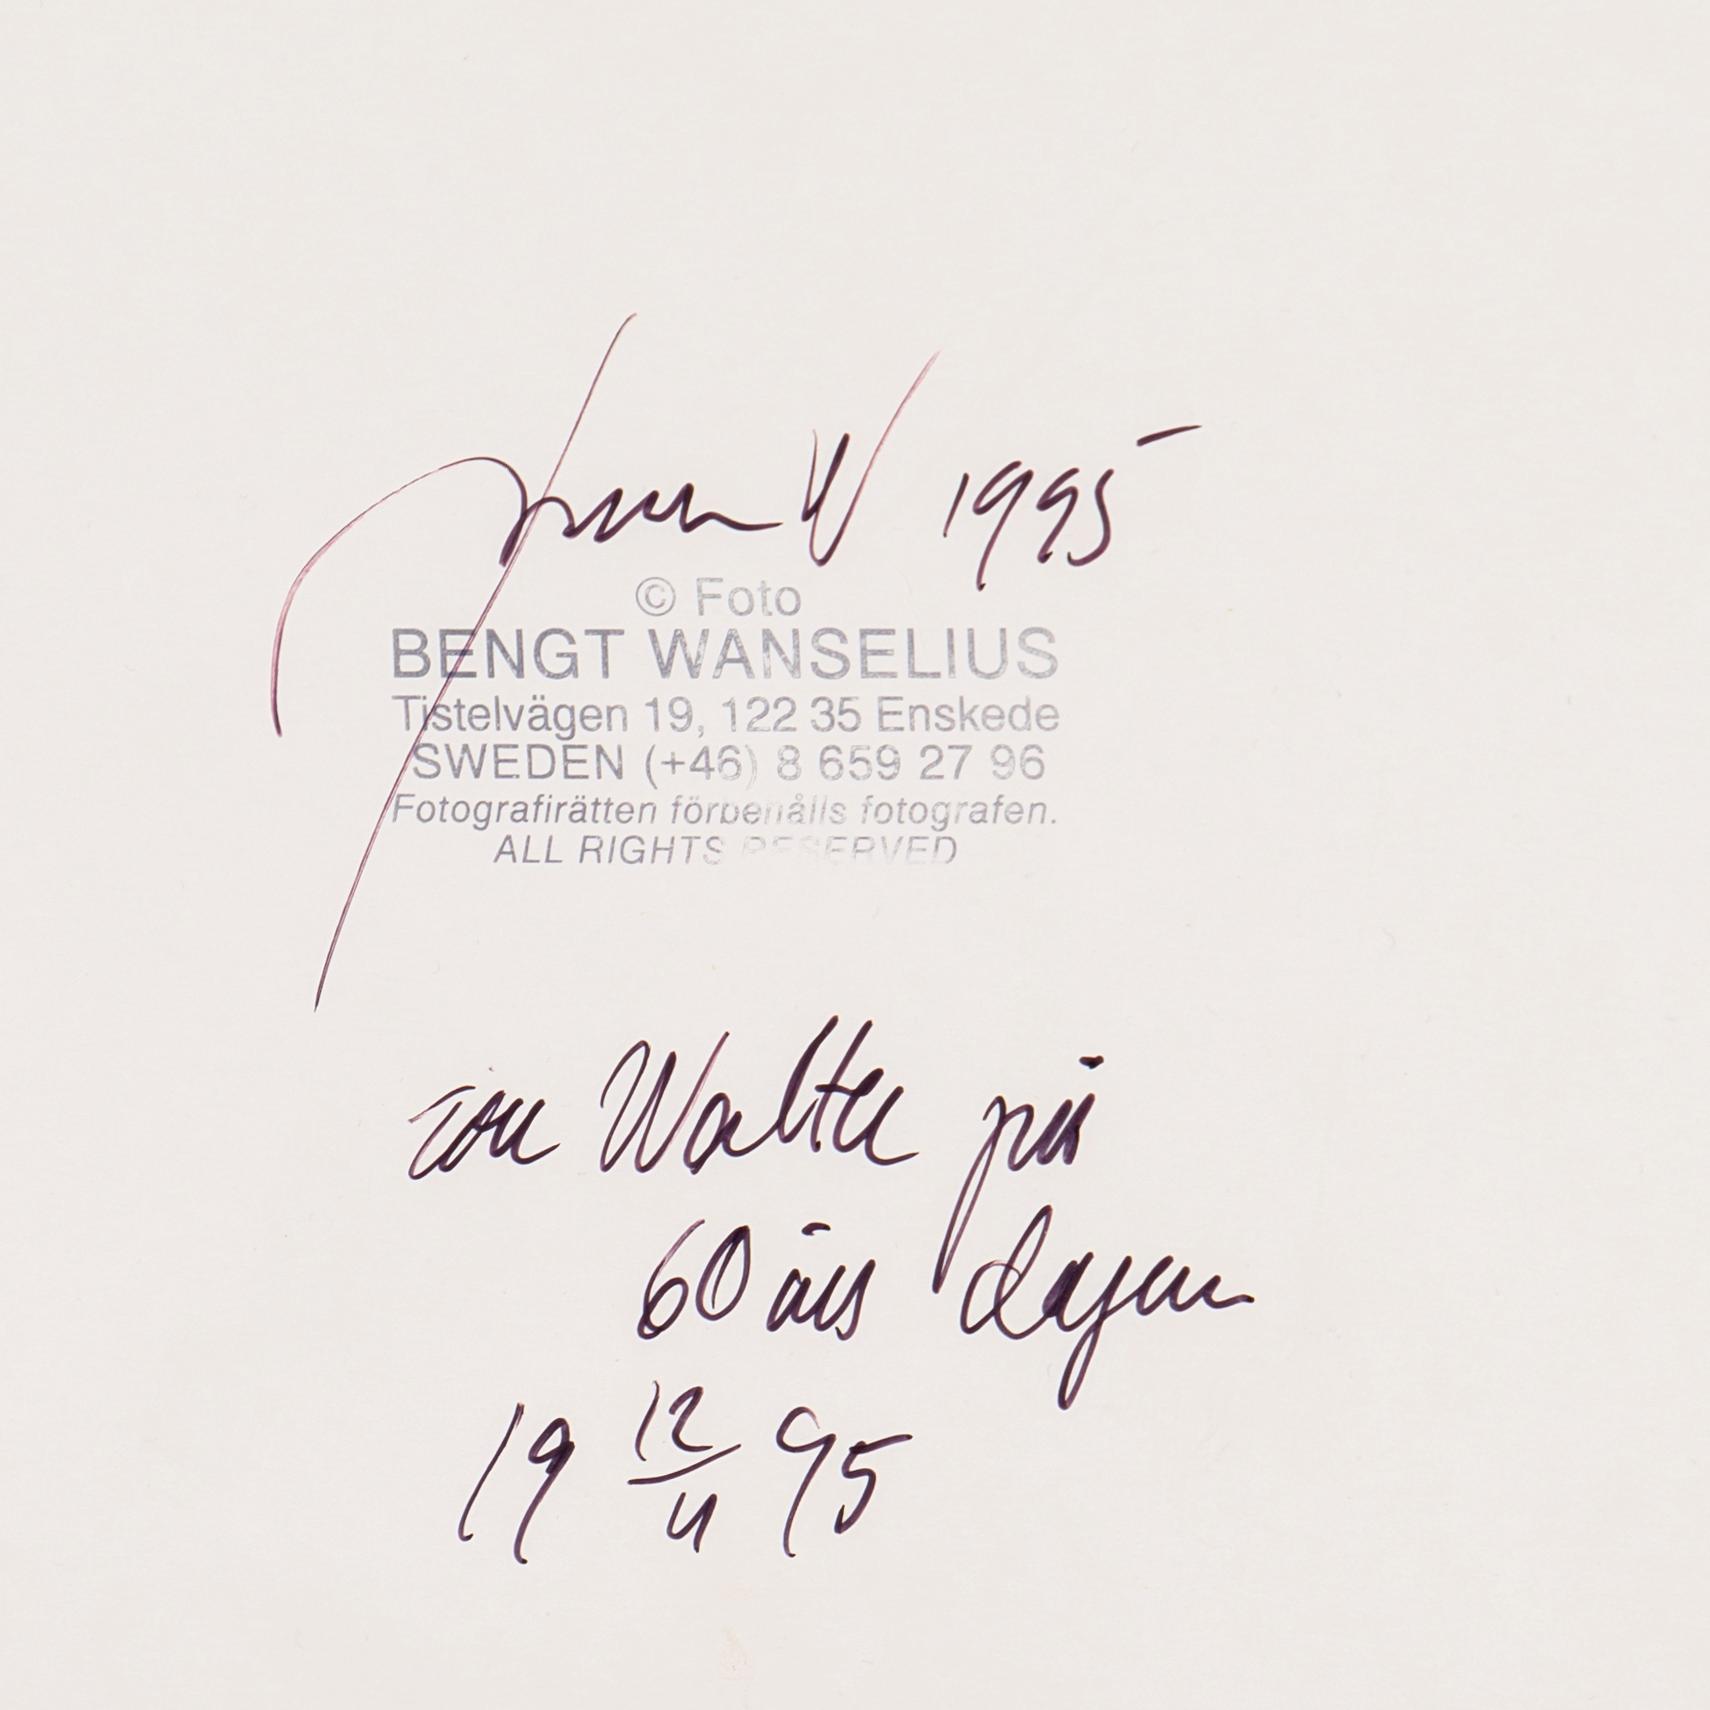 W 1995
© Foto
BENGT WANSELIUS
Tistelvägen 19, 122 35 Enskede
SWEDEN (+46) 8 659 27 96
Fotografirätten förbehålls fotografen.
ALL RIGHTS RESERVED
Walter på
60 års dagen
19 12/4 95